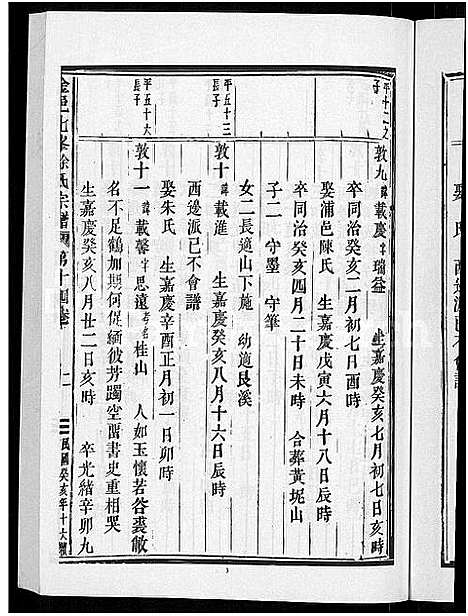 平十二之
子
敦九 諱載慶字瑞益 生嘉慶癸亥七月初七日亥時
卒同治癸亥二月初七日酉時
娶浦邑陳氏 生嘉慶戊寅六月十八日辰時
卒同治癸亥四月二十日未時 合葬黃坭山
子二 守墨 守筆
女二長適山下施 幼適艮溪
平五十三
長子
敦十 諱載滙 生嘉慶癸亥八月十六日辰時
娶朱氏 生嘉慶辛酉正月初一日卯時
西邊派已不會譜
平五十六
長子
敦十一 諱載馨字思遠考名桂山 人如玉懷若谷裘敝
名不足鶴加期何促緬彼芳躅空留書史重相哭
生嘉慶癸亥八月廿二日亥時 卒光緒辛卯九
徐氏宗譜 第十四
民國癸亥年十六
娶 氏 西邊派已不會譜